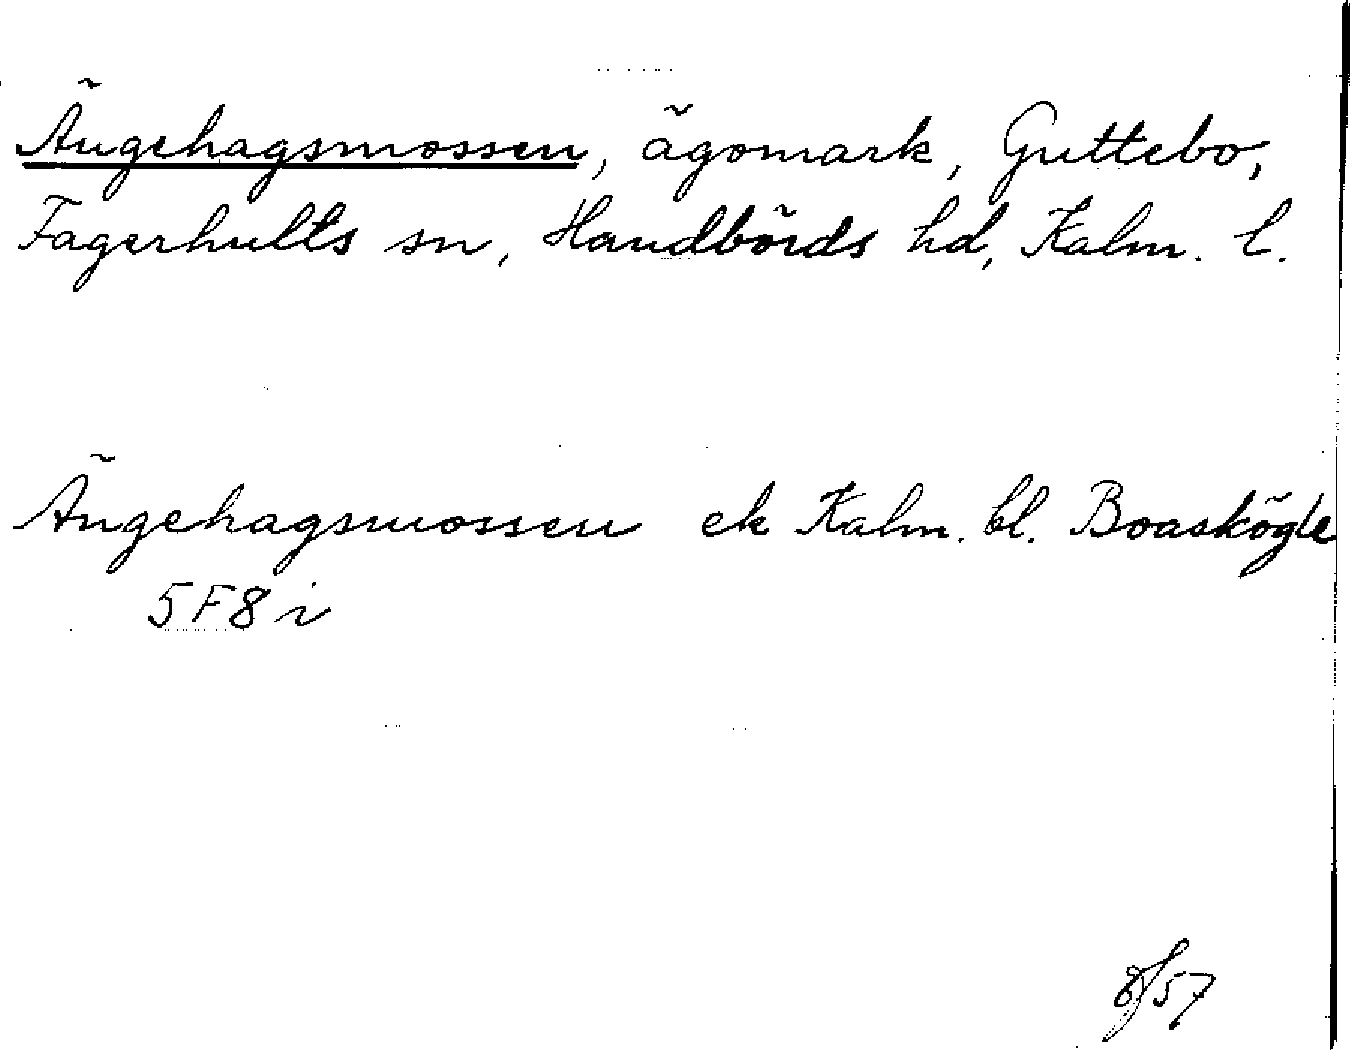 Ängehagsmossen, ägomark, Guttebo,
Fagerhults sn, Handbörds hd, Kalm. l.
Ängehagsmossen ek Kalm. bl. Boaskögle
5F8i